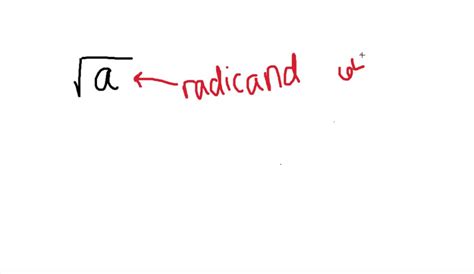 √a ← radicand